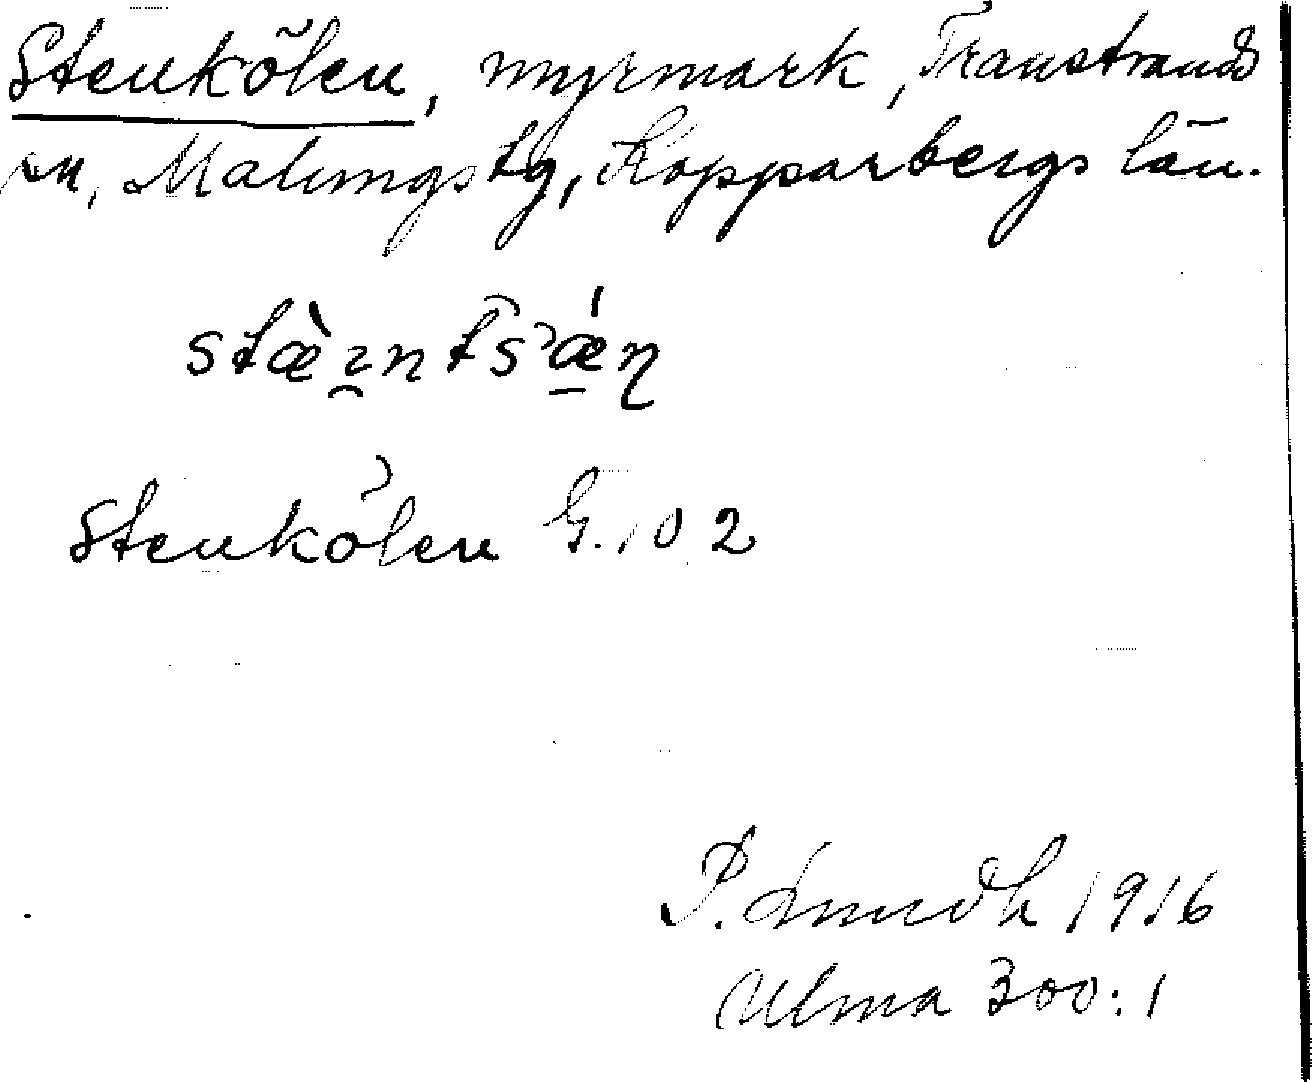 Stenkölen, myrmark, Transtrands
sn, Malungs tg, Kopparbergs län.
Stenkölen G. 102
P. Lundh 1916
Ulma 300:1